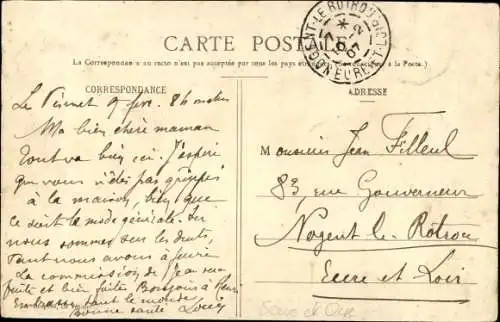 CARTE POSTALE
La Correspondance au recto n'est pas acceptée par tous les pays étrangers (Se renseigner à la Poste.)
CORRESPONDANCE
ADRESSE
NOGENT-LE-ROTROU
EURE-ET-LOIR
Le Vésinet 9 fév. 8h matin
Ma bien chère maman
Tout va bien ici. J'espère
que vous n'êtes pas grippés
à la maison, bien que
ce soit la mode générale. Ici
nous sommes sur les dents,
tant nous avons à faire
La commission de Jean
faite et bien faite. Bonjour à
Embrasse tout le monde
Bonne santé Louis
Monsieur Jean Filleul
83, rue Gouverneur
Nogent le Rotrou
Eure et Loir
Seine et Oise